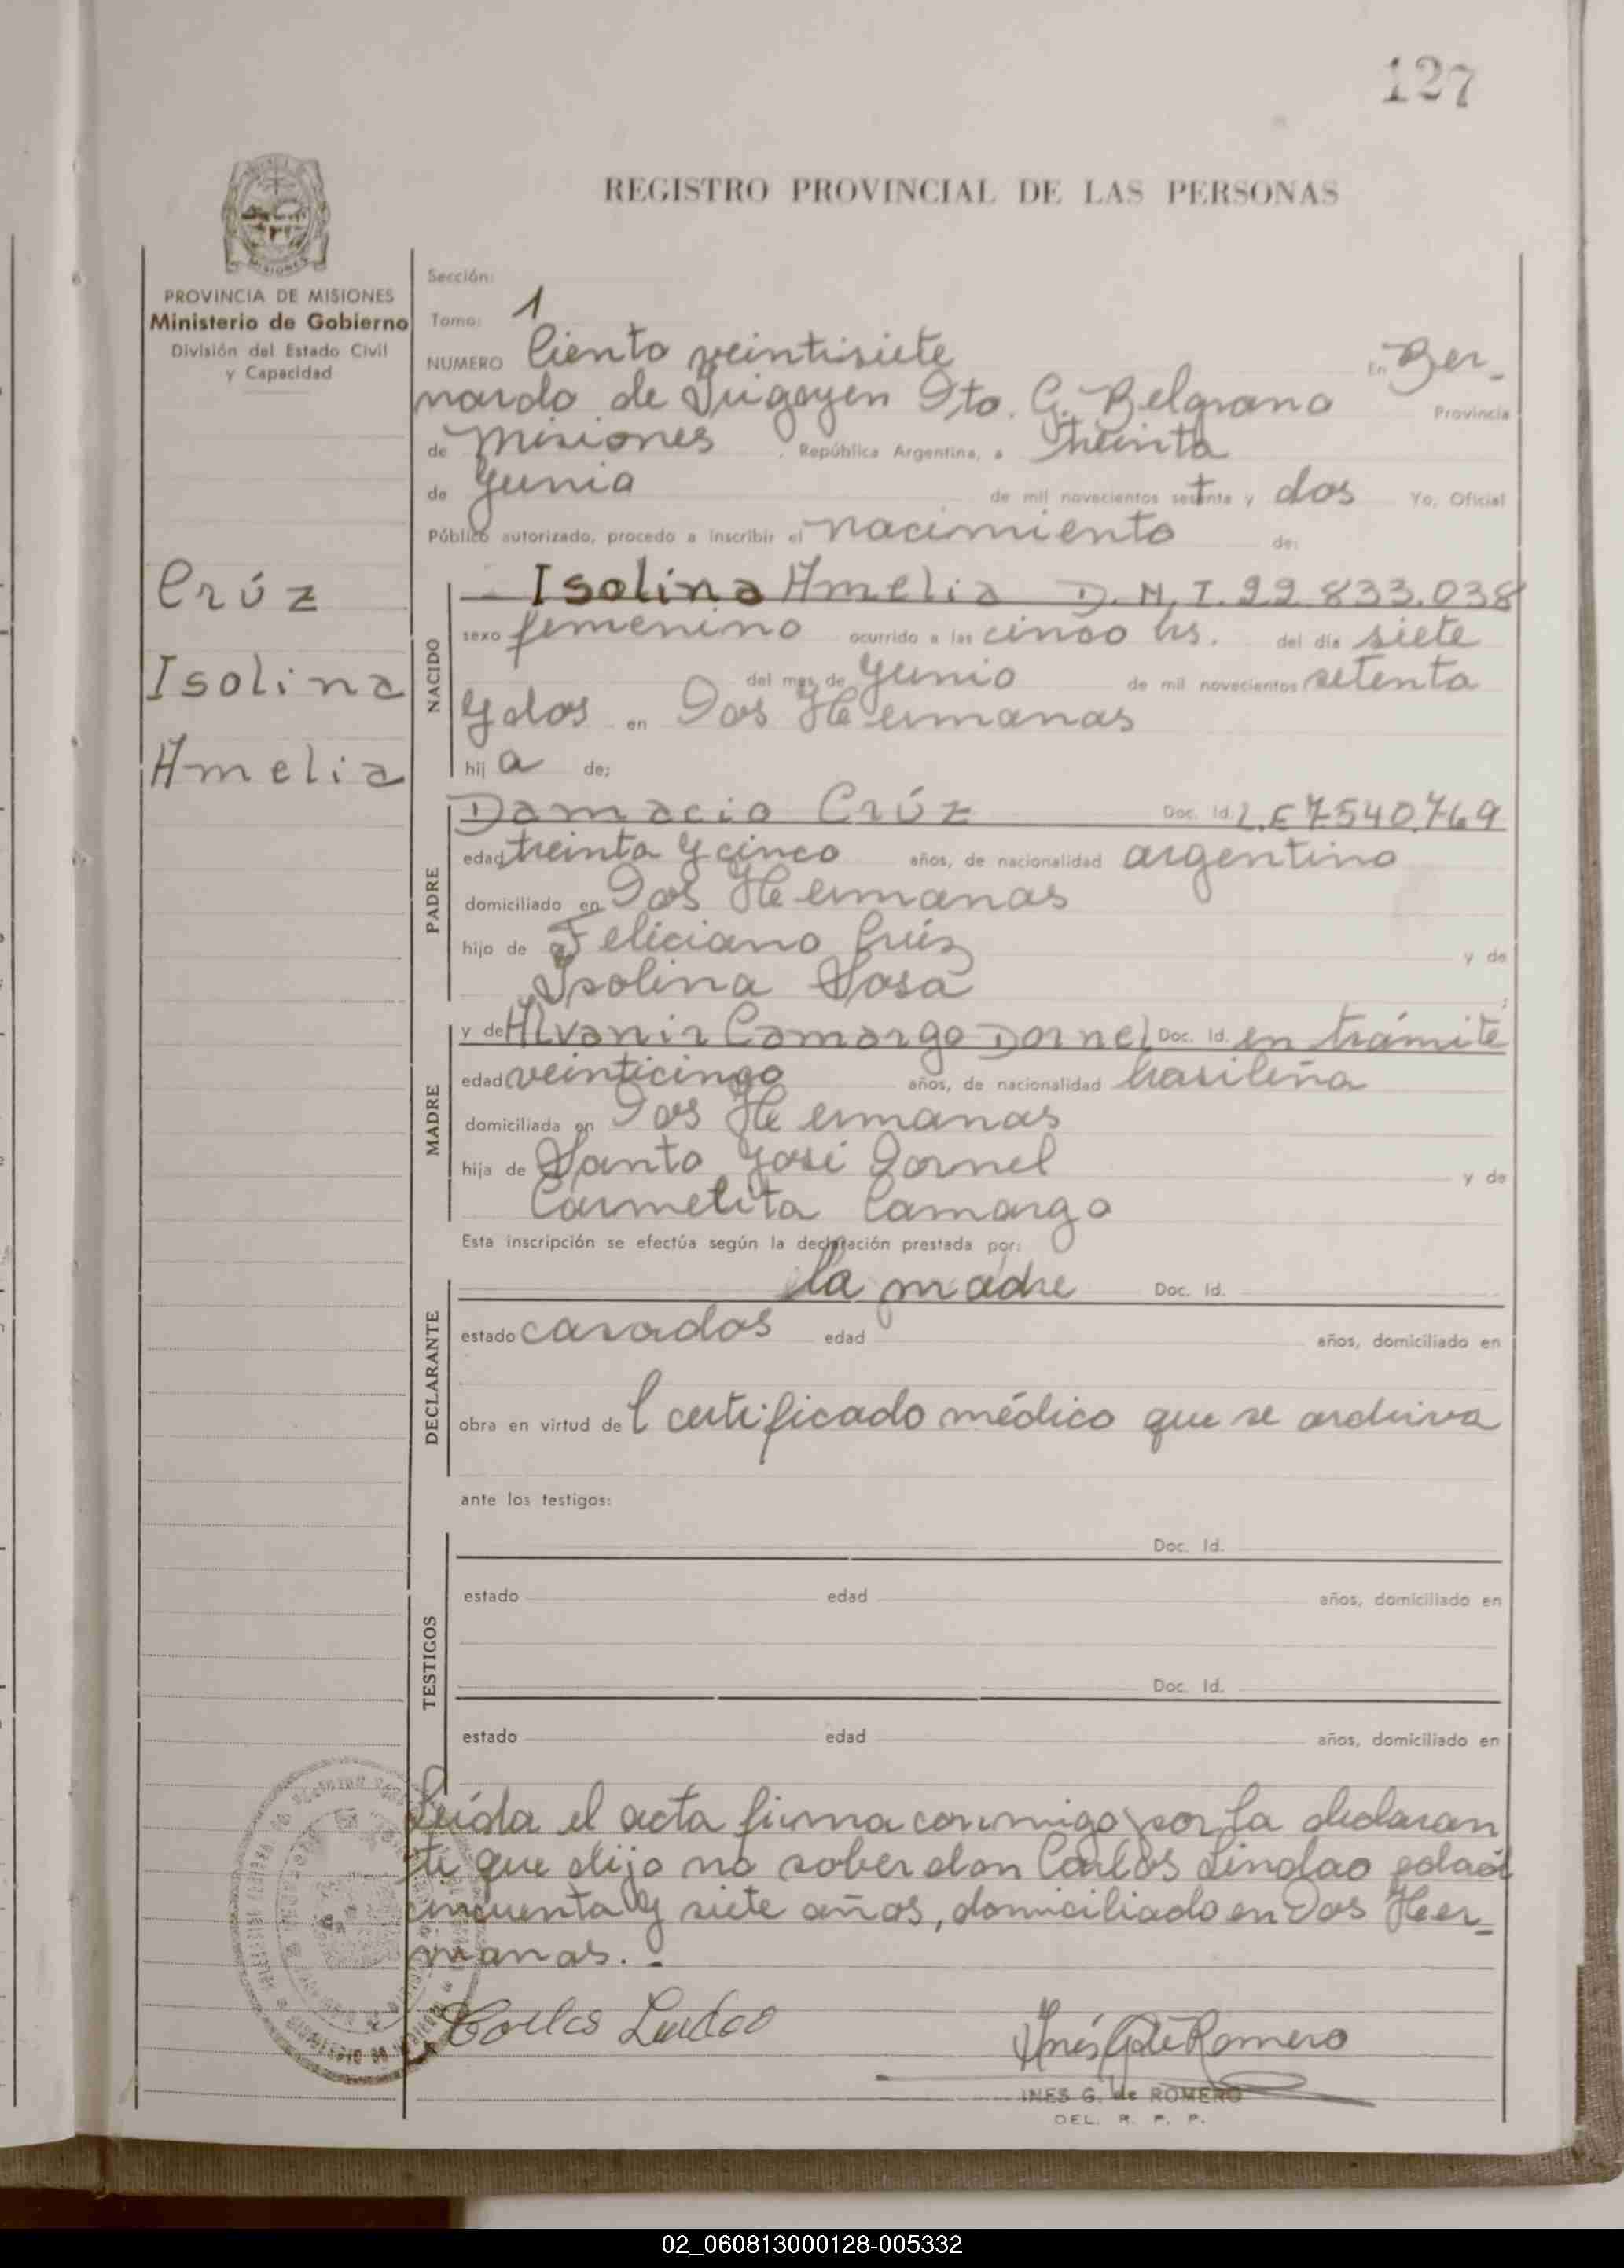 127
REGISTRO PROVINCIAL DE LAS PERSONAS
MISIONES
PROVINCIA DE MISIONES
Ministerio de Gobierno
División del Estado Civil
y Capacidad
Crúz
Isolina
Amelia
Sección:
Tomo: 1
NUMERO Ciento veintisiete En Ber-
nardo de Irigoyen Dto. G. Belgrano Provincia
de Misiones República Argentina, a treinta
de Junio de mil novecientos setenta y dos Yo, Oficial
Público autorizado, procedo a inscribir el nacimiento de:
NACIDO
Isolina Amelia D.N.I. 22.833.038
sexo femenino ocurrido a las cinco hs. del día siete
del mes de Junio de mil novecientos setenta
y dos en Dos Hermanas
hij a de:
PADRE
Damacio Crúz Doc. Id. L.E 7.540.769
edad treinta y cinco años, de nacionalidad argentino
domiciliado en Dos Hermanas
hijo de Feliciano Crúz y de
Isolina Sosa
MADRE
y de Alvanir Camargo Dornel Doc. Id. en trámite
edad veinticinco años, de nacionalidad brasileña
domiciliada en Dos Hermanas
hija de Santo José Dornel y de
Carmelita Camargo
Esta inscripción se efectúa según la declaración prestada por:
DECLARANTE
la madre Doc. Id.
estado casados edad años, domiciliado en
obra en virtud del certificado médico que se archiva
ante los testigos:
TESTIGOS
Doc. Id.
estado edad años, domiciliado en
Doc. Id.
estado edad años, domiciliado en
Leída el acta firma conmigo por la declaran
te que dijo no saber don Carlos Lindao edad
cincuenta y siete años, domiciliado en Dos Her-
manas.-
Carlos Lindao
Inés G de Romero
INES G. de ROMERO
DEL. R. P. P.
02_060813000128-005332